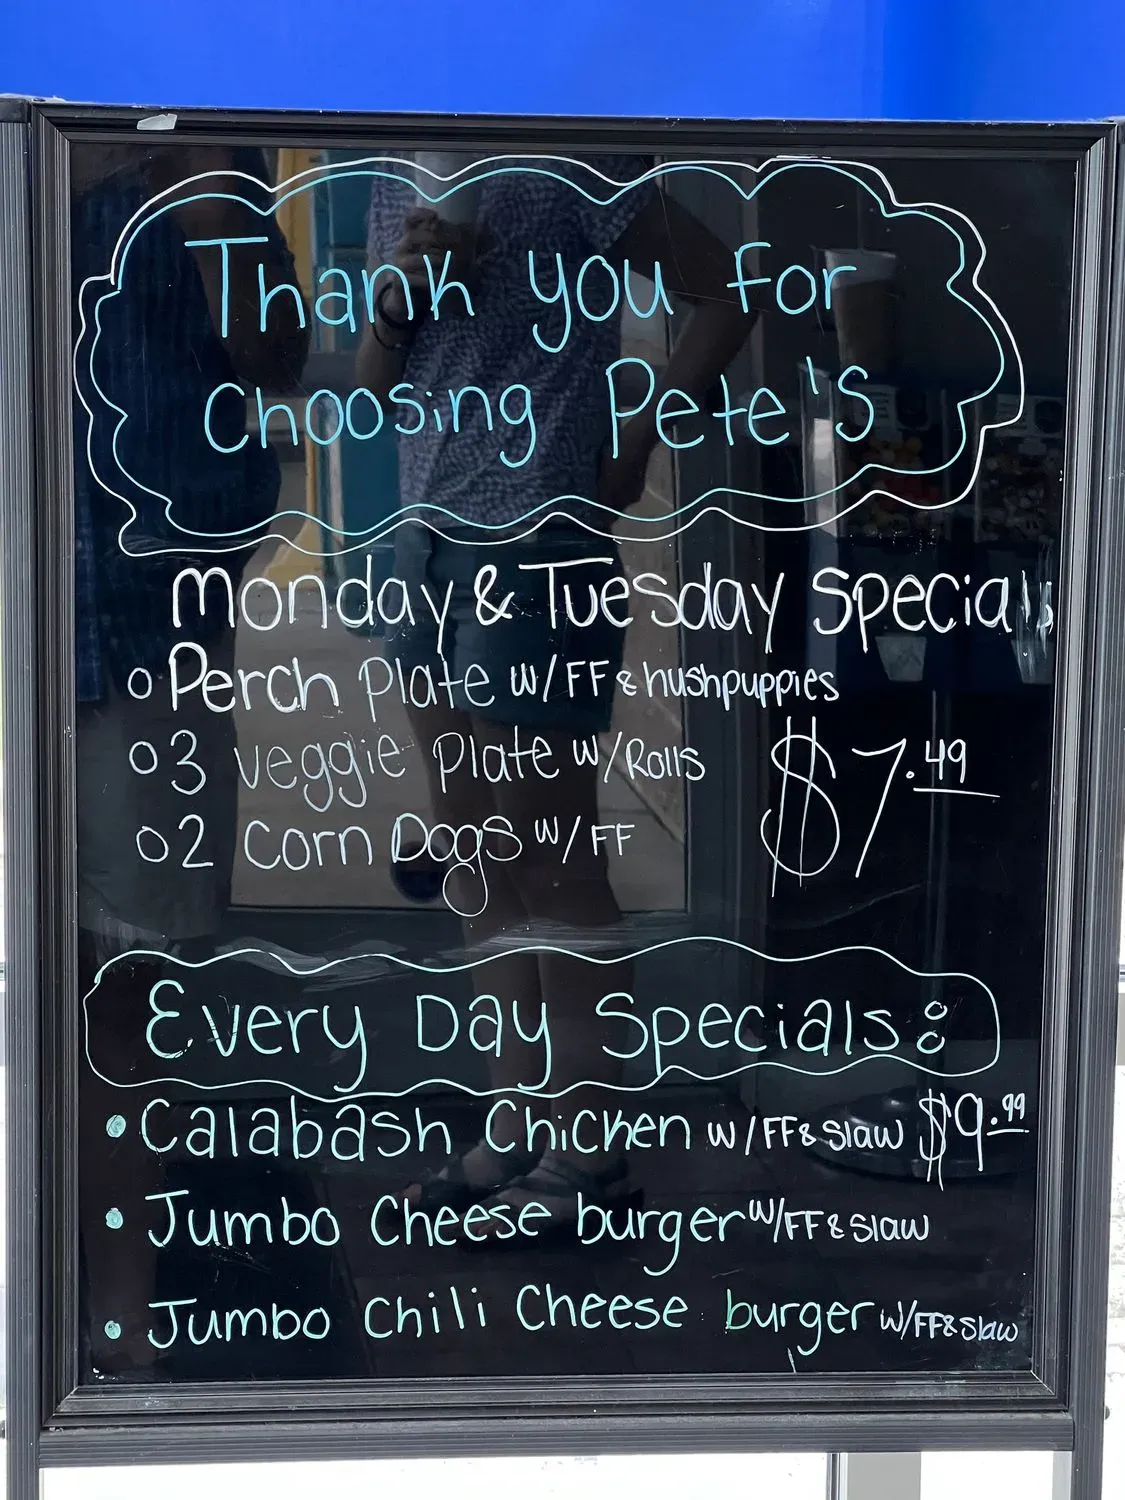 Thank you for
Choosing Pete's
Monday & Tuesday Specials
Perch Plate w/FF & hushpuppies
3 veggie Plate w/Rolls $7.49
2 Corn Dogs w/FF
Every Day Specials:
Calabash Chicken w/FF & Slaw $9.99
Jumbo Cheese burger w/FF & Slaw
Jumbo Chili Cheese burger w/FF & Slaw